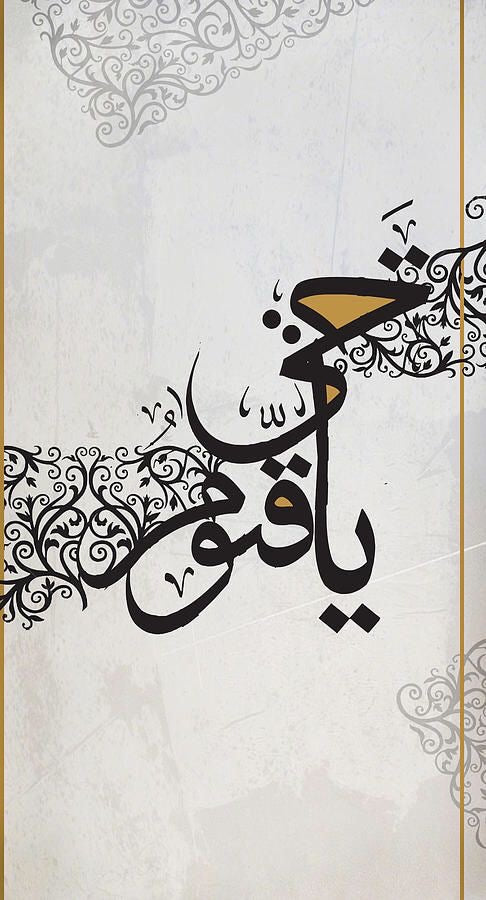 حَيّ
يا قيّوُم